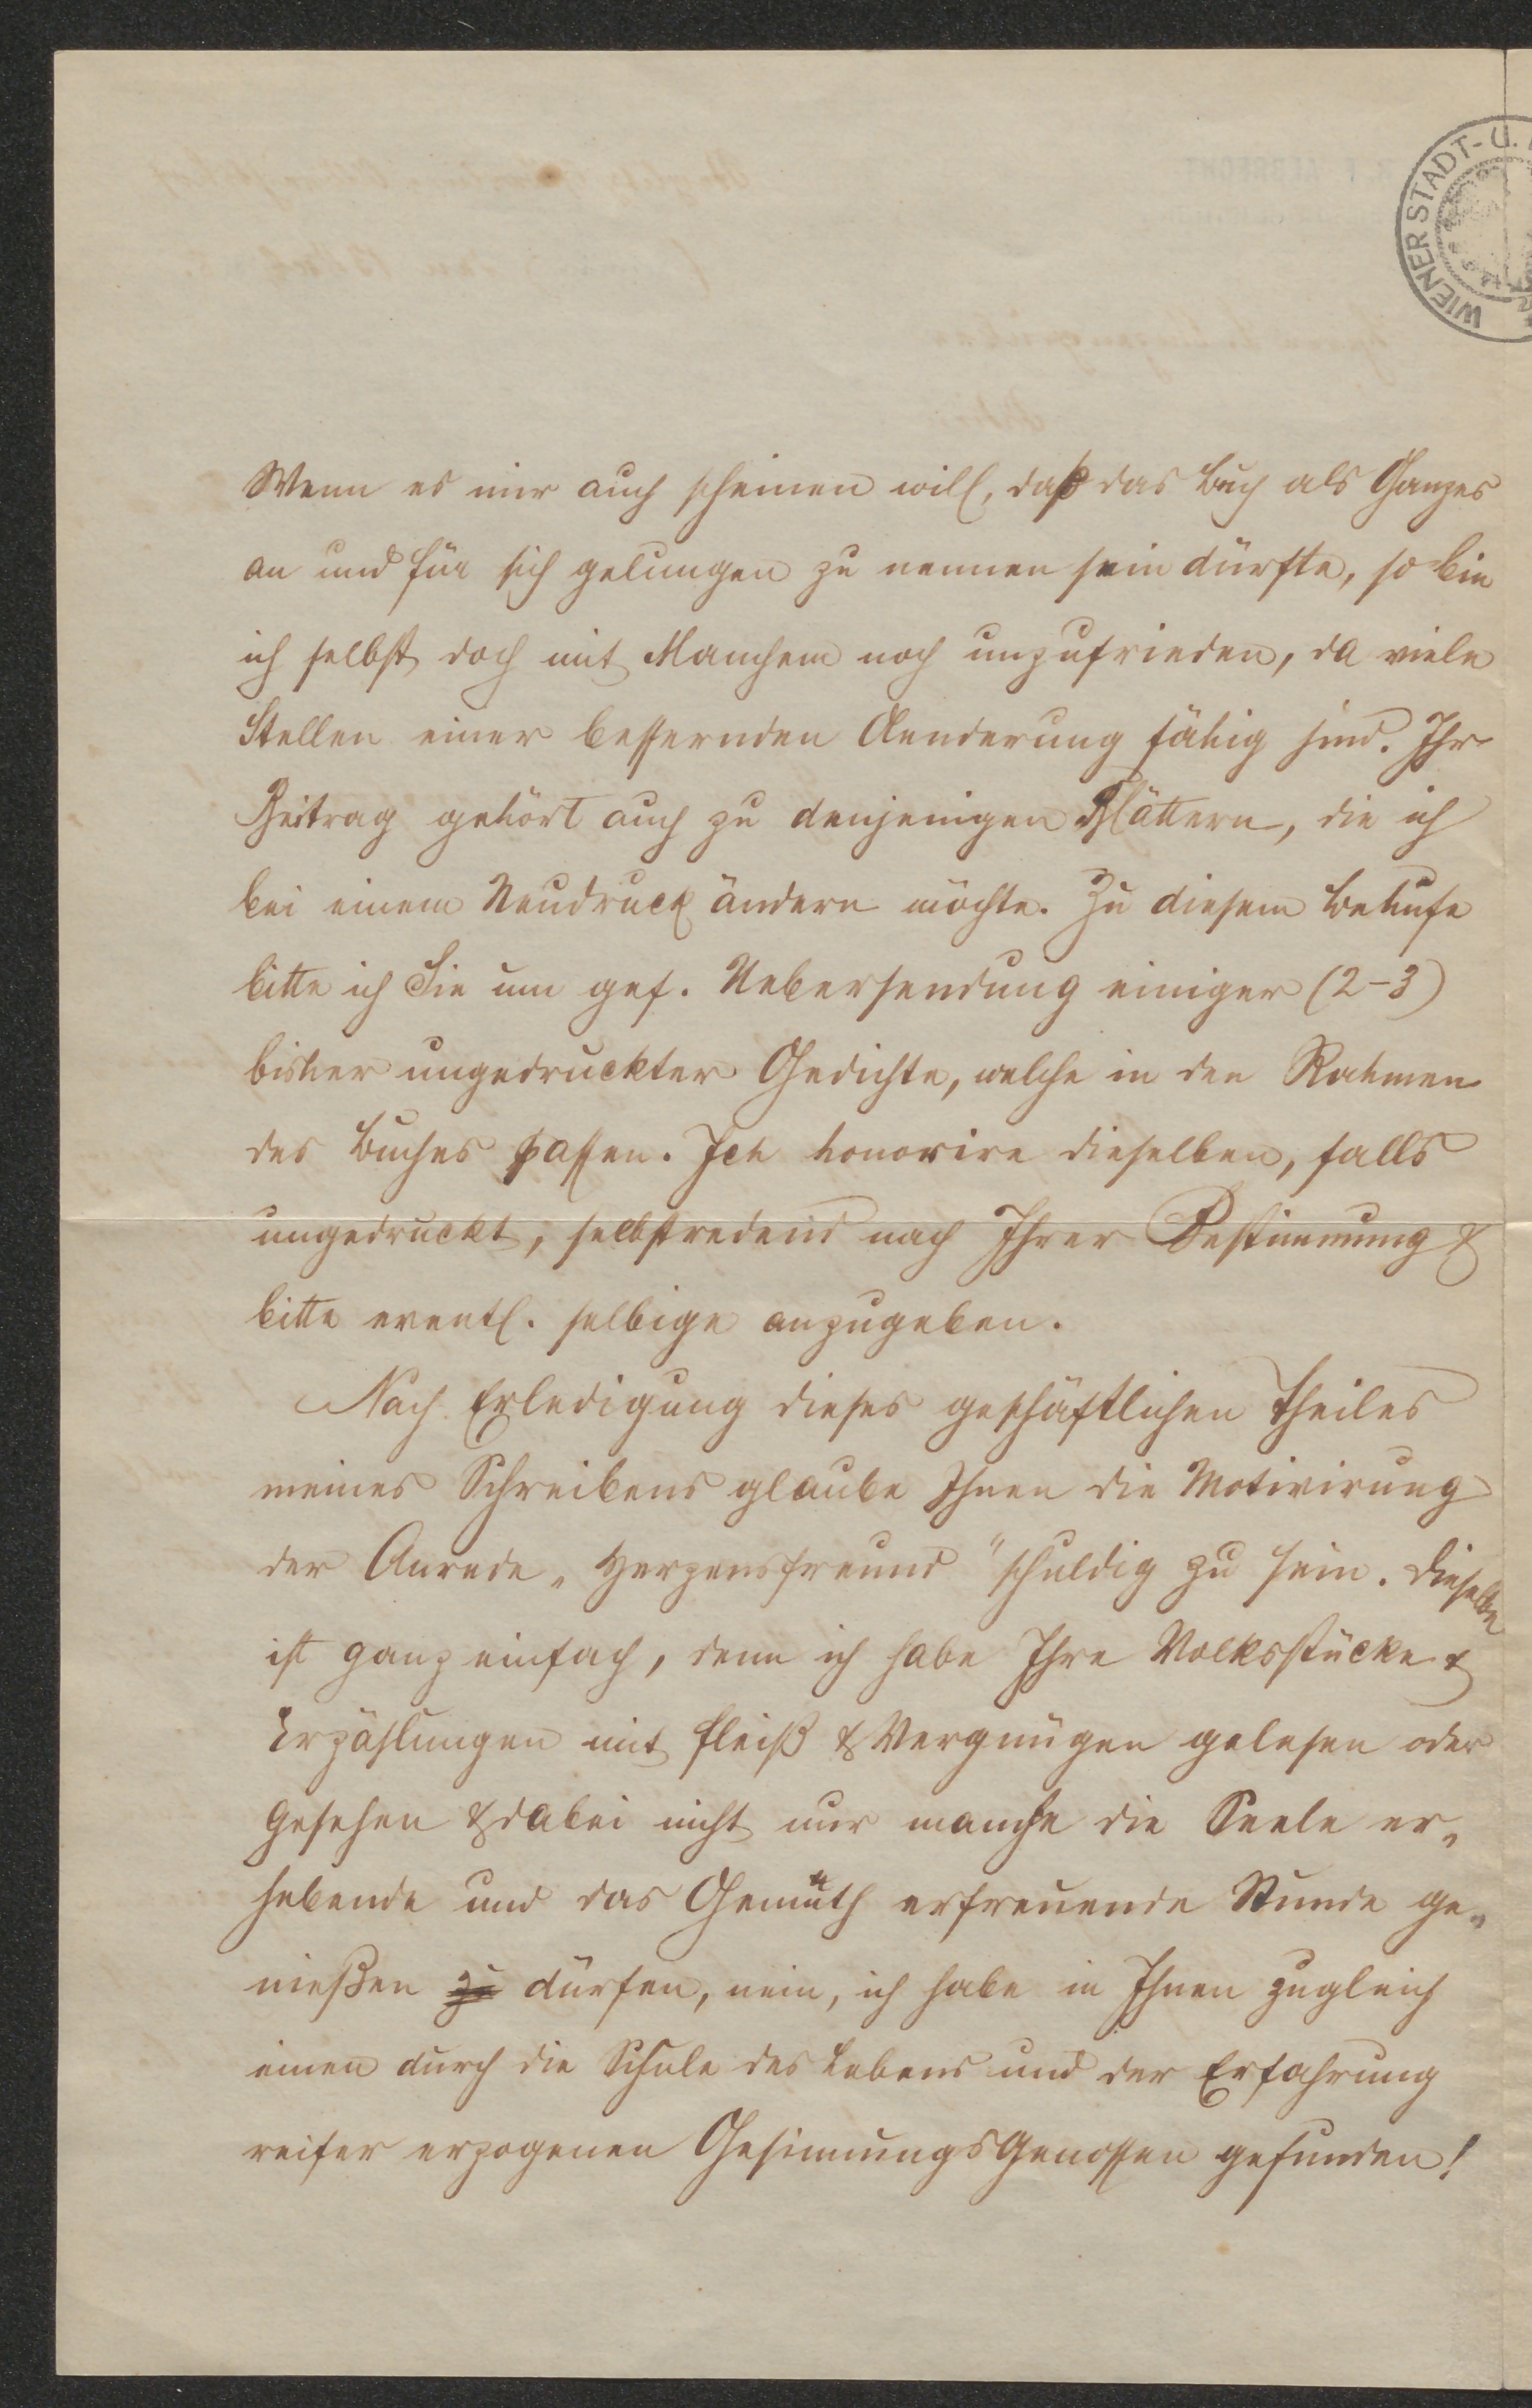 WIENER STADT- U.
Wenn es mir auch scheinen will, daß das Buch als Ganzes
an und für sich gelungen zu nennen sein dürfte, so bin
ich selbst doch mit Manchem noch unzufrieden, da viele
Stellen einer bessernden Aenderung fähig sind. Ihr
Beitrag gehört auch zu denjenigen Blättern, die ich
bei einem Neudruck ändern möchte. Zu diesem Behufe
bitte ich Sie um gef. Uebersendung einiger (2-3)
bisher ungedruckter Gedichte, welche in den Rahmen
des Buches passen. Ich honorire dieselben, falls
ungedruckt, selbstredend nach Ihrer Bestimmung &
bitte eventl. selbige anzugeben.
Nach Erledigung dieses geschäftlichen Theiles
meines Schreibens glaube Ihnen die Motivirung
der Anrede „Herzensfreund" schuldig zu sein. Dieselbe
ist ganz einfach, denn ich habe Ihre Volksstücke &
Erzählungen mit Fleiß & Vergnügen gelesen oder
gesehen & dabei nicht nur manche die Seele er„
hebende und das Gemüth erfreuende Stunde ge„
nießen zu dürfen, nein, ich habe in Ihnen zugleich
einen durch die Schule des Lebens und der Erfahrung
reifer erzogenen Gesinnungsgenossen gefunden!